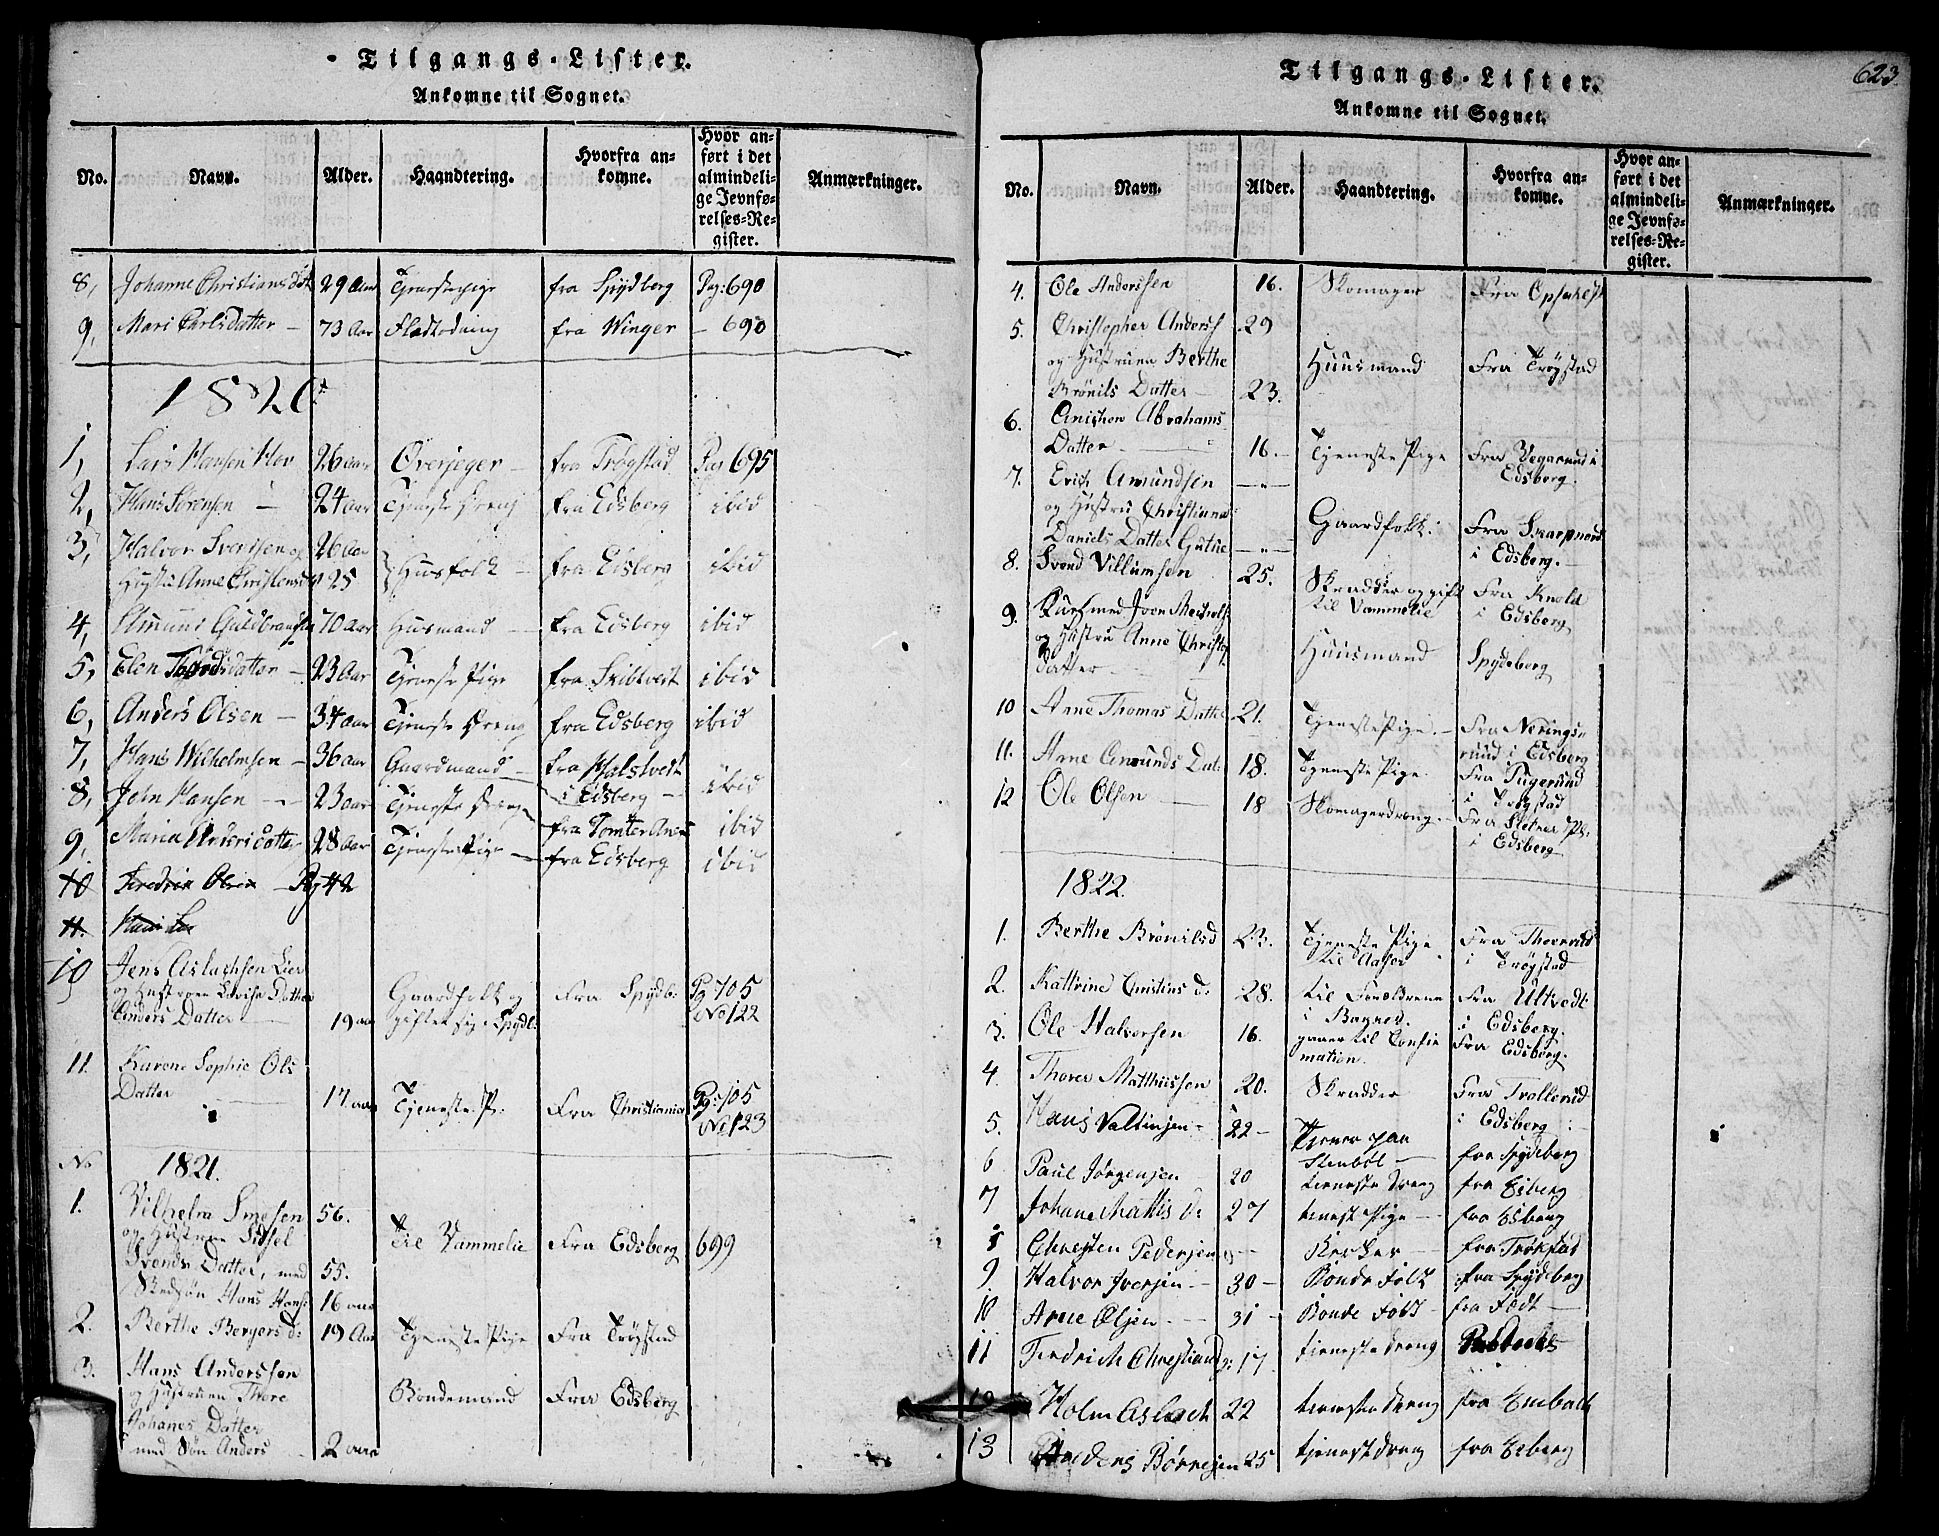 Tilgangs-Lister.
Ankomne til Sognet.
No. Navn. Alder. Haandtering. Hvorfra ankomne. Hvor anført i det almindelige Jevnførelses-Register. Anmærkninger.
8, Johanne Christiansdat 29 Aar Tjenestepige fra Spydberg Pag: 690
9, Mari Carlsdatter – 73 Aar fra Winger – 690
1820
1, Lars Hansen Hov 26 aar Overjeger – fra Trøgstad Pag 695
2, Hans Sørensen – 24 aar Tjeneste Dreng fra Edsberg ibid
3, Halvor Svendsen og 26 Aar
Hustru Anne Christensd 25 Husfolk – fra Edsberg ibid
4, Amund Guldbrandsen 70 Aar Husmand – fra Edsberg ibid
5, Elen Tordsdatter – 23 Aar Tjeneste Pige fra Skibtvedt ibid
6, Anders Olsen – 34 aar Tjeneste Dreng fra Edsberg ibid
7, Hans Wilhelmsen – 36 aar Gaardmand – fra Halstvedt
i Edsberg – ibid
8, John Hansen – 23 aar Tjeneste Dreng fra Tomter ibid
9, Maria Andersdatter 28 Aar Tjeneste Pige – fra Edsberg ibid
10 Fredrik Olsen
11.
10 Jens Aslachsen Lier
og Hustruen Lovise Datter
Anders Datter – 19 aar Gaardfolk og
gifter sig i Spydb: Fra Spydb: Pg 705
No 122
11. Karene Sophie Ols
Datter – 17 aar Tjeneste P: Fra Christiania Pg: 705
No 123
No 1821.
1. Vilhelm Simesen 56.
og Hustrue Sidsel
Svends Datter, med 55. Til Vammelie Fra Edsberg 699
Stedsøn Hans Hans: 16 aar
2. Berthe Bergers d: 19 Aar Tjeneste Pige Fra Trøgstad
3. Hans Anderssen
og Hustruen Thore
Johanes Datter Bondemand Fra Edsberg
med Søn Anders 2 aar
623.
Tilgangs-Lister.
Ankomne til Sognet.
No. Navn. Alder. Haandtering. Hvorfra ankomne. Hvor anført i det almindelige Jevnførelses-Register. Anmærkninger.
4. Ole Anderssen 16. Skomager Fra
5. Christopher Anderss 29
og Hustruen Berthe Huusmand Fra Trøgstad
Brønils Datter – 23.
6. Anichen Abrahams
Datter 16. Tjeneste Pige Fra Vegarud i
Edsberg.
7. Erich Amundsen –„–
og Hustru Christiane Gaardfolk: Fra
Daniels Datter –„– i Edsberg.
8. Svend Villumsen 25. Skrædder og gift
til Vammelie Fra Knold
i Edsberg
9. med
og Hustru Anne Christof
datter Huusmand Spydeberg
10 Anne Thomas Datter 21. Tjeneste Pige. – Fra Nerings-
rud i Edsberg
11. Anne Amunds Dat: 18. Tjeneste Pige. Fra
i Trøgstad
12 Ole Olsen 18 Skomagerdreng. Fra Sletner Pl:
i Edsberg
1822.
1. Berthe Brønilsd 23. Tjeneste Pige
til Aaser Fra
i Trøgstad
2. Kattrine Christins d: 28. til Foreldrene
i Bagnes. Fra Ultvedt
i Edsberg.
3. Ole Halvorsen 16. gaaer til Confir
mation. Fra Edsberg.
4. Thorer Matthissen 20. Skrædder Fra Trollerud
i Edsberg:
5. Hans Valtinsen – 22 – Tjener paa
Stenbøl – fra Spydeberg
6 Paul Jørgensen 20 tieneste Dreng fra Esberg
7 Johane Mattis D: 27 tienest Pige – fra Esberg
8 Christen Pedersen – – fra Trøkstad
9. Halvor Iversen – 30 – Bonde Folk fra Spydeberg
10 Arne Olsen – 31 – Bonde Folk fra
11 Fredrich Christians: 17 tieneste dreng
12 Holm Aslach 22 tieneste dreng fra
13 Anders Børresen 25 tjenest dreng fra Esberg